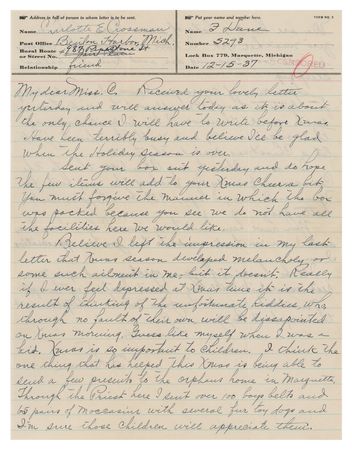 Address in full of person to whom letter is to be sent.
Put your name and number here.
FORM NO. 5
Name Charlotte E Crossman
Name F Dane
Post Office Benton Harbor, Mich.
Number 5293
Rural Route or Street No. 987
Lock Box 779, Marquette, Michigan
Relationship friend
Date 12-15-37
My dear Miss. C. Received your lovely letter
yesterday and will answer today as it is about
the only chance I will have to write before Xmas
Have been terribly busy and believe I'll be glad
when the Holiday season is over.
Sent your box out yesterday and do hope
the few items will add to your Xmas Cheer but
you must forgive the manner in which the box
was packed because you see we do not have all
the facilities here we would like.
Believe I left the impression in my last
letter that Xmas season developed melancholy, or
some such ailment in me, but it doesn't. Really
if I ever feel depressed at Xmas time it is the
result of thinking of the unfortunate kiddies who
through no fault of their own will be disappointed
on Xmas morning. Guess like myself when I was a
kid. Xmas is so important to children. I think the
one thing that has helped this Xmas is being able to
send a few presents to the orphans home in Marquette.
Through the Priest here I sent over 100 boys belts and
65 pairs of Moccasins with several fur toy dogs and
I'm sure those children will appreciate them.